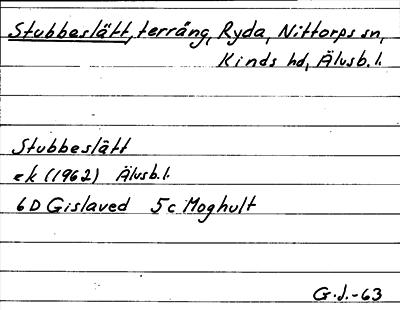 Stubbeslätt, terräng, Ryda, Nittorps sn,
Kinds hd, Älvsb. l.
Stubbeslätt
ek (1962) Älvsb. l.
6D Gislaved 5c Moghult
G.J.-63